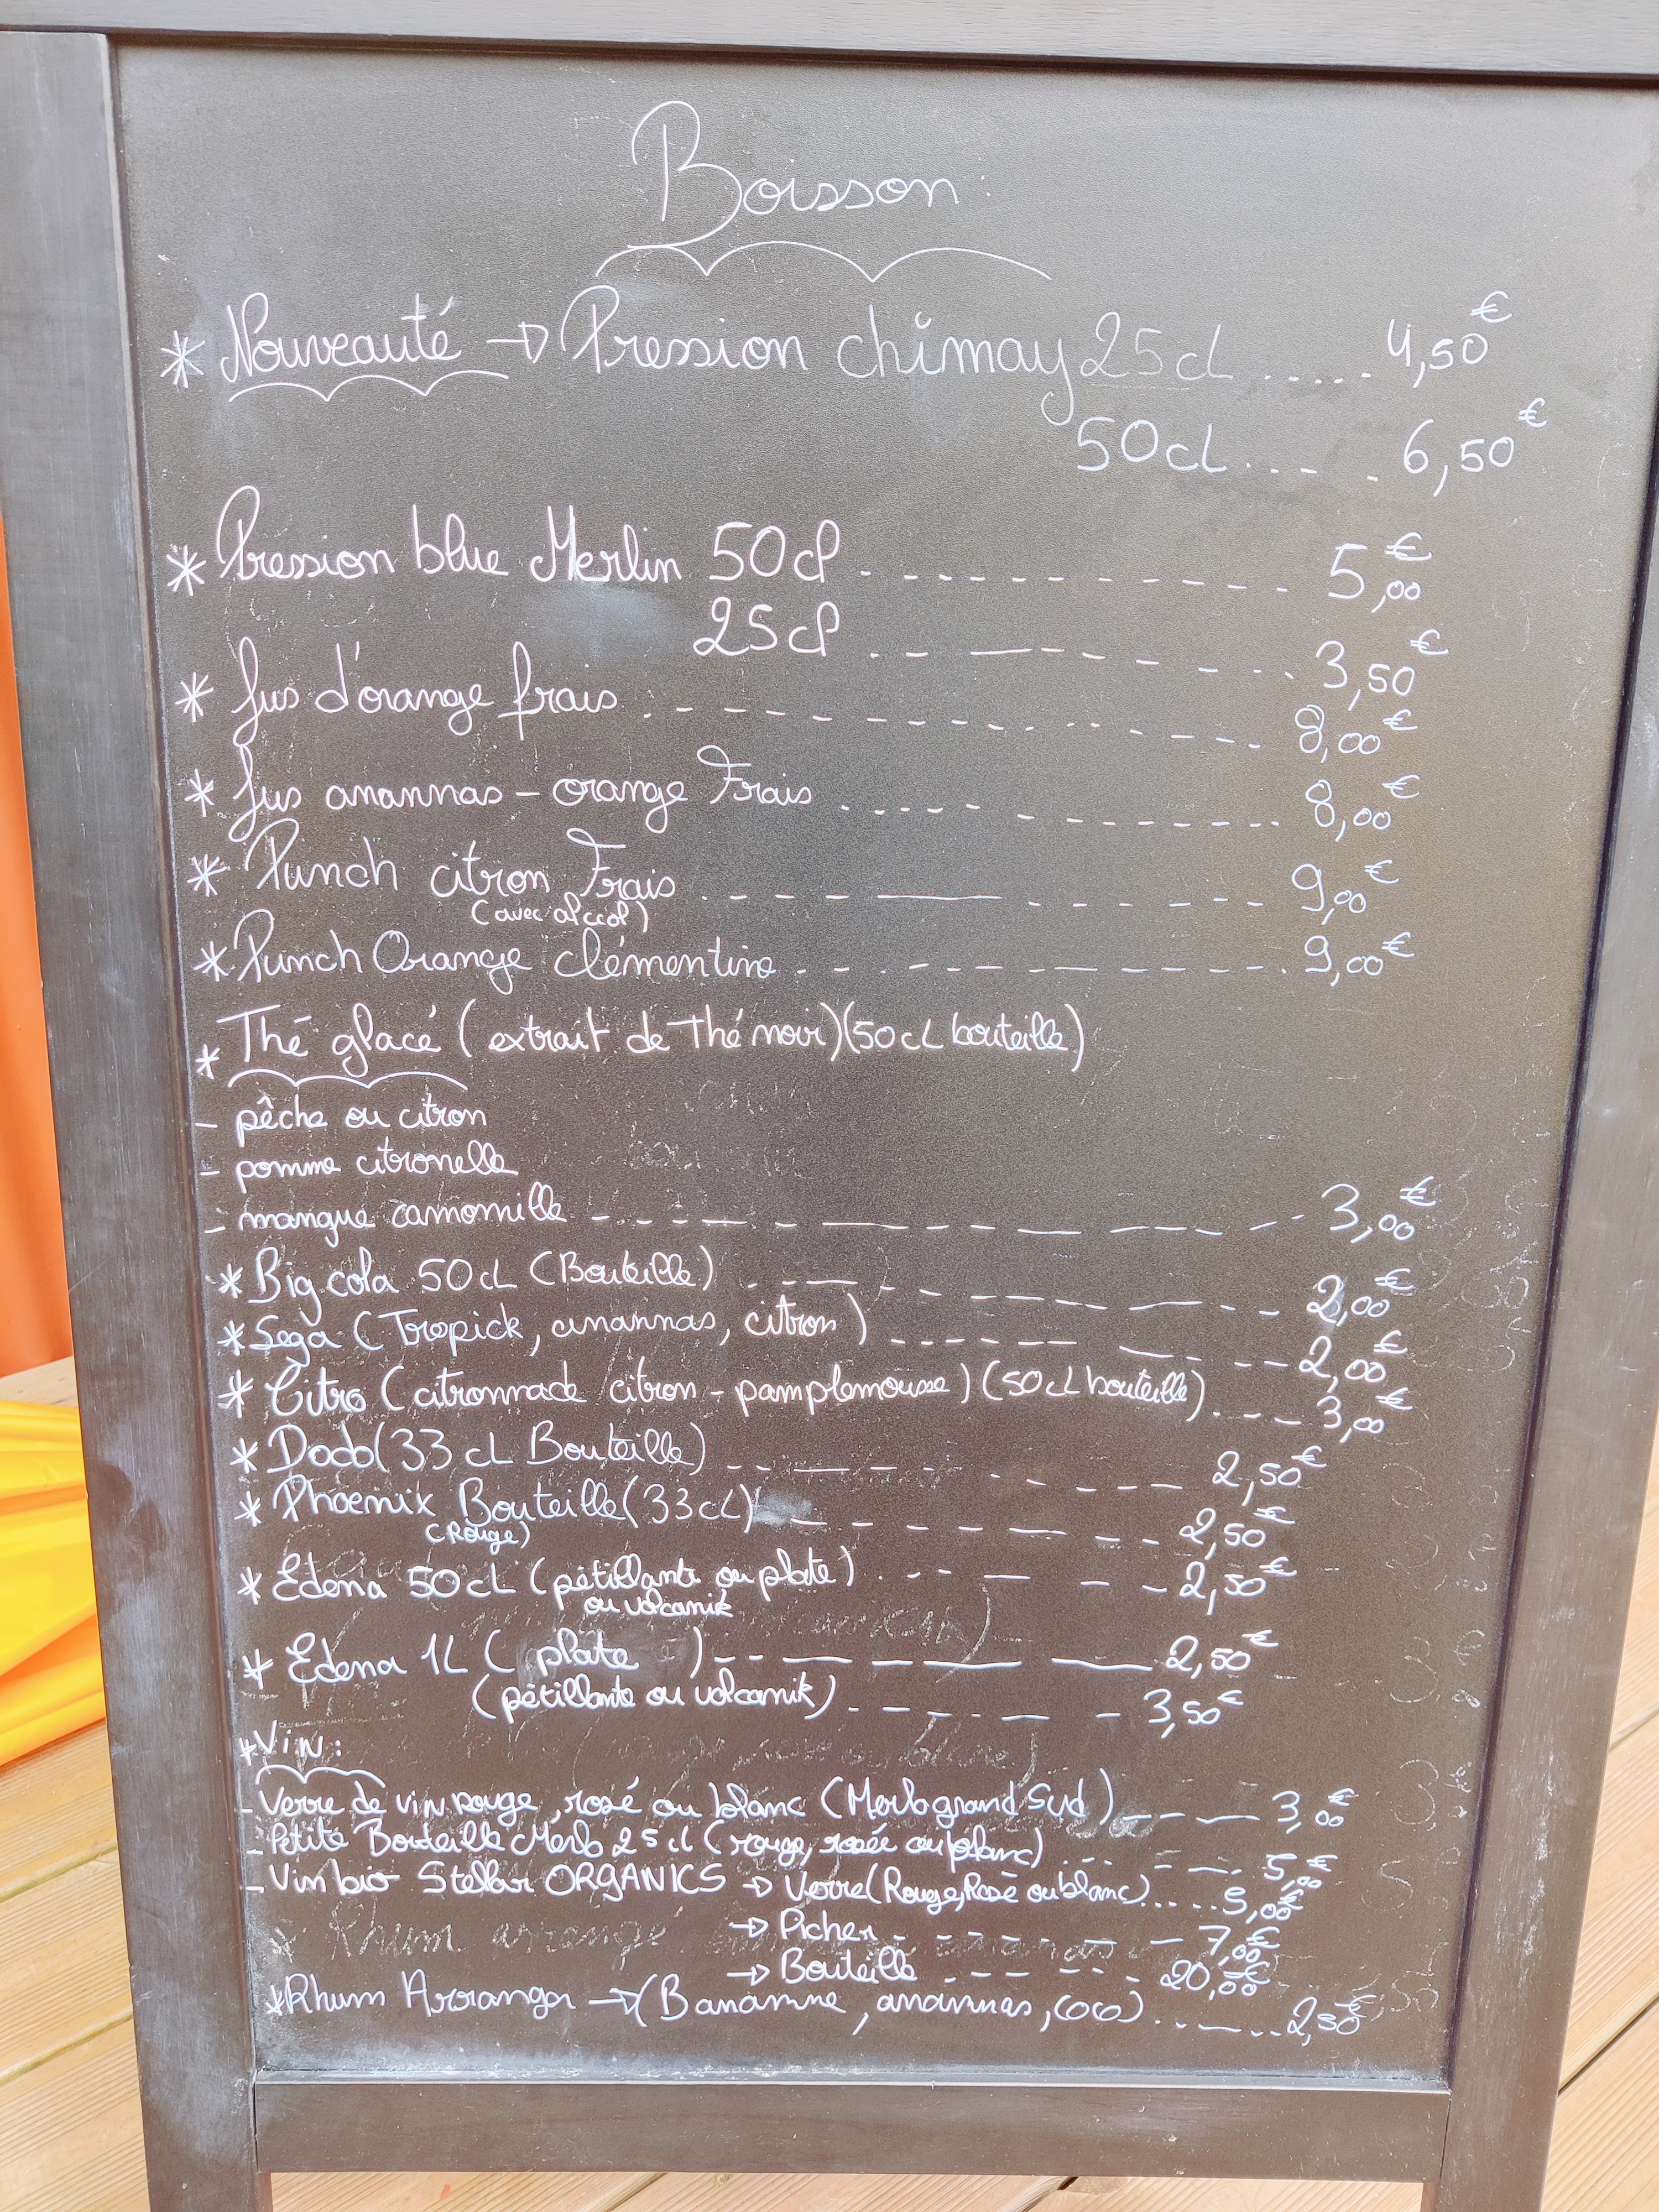 Boisson
* Nouveauté → Pression chimay 25cl ...... 4,50€
50cl ..... 6,50€
* Pression blue Merlin 50cl ........... 5,00€
25cl ........... 3,50€
* Jus d'orange frais ........... 8,00€
* Jus anannas - orange Frais ........... 8,00€
* Punch citron Frais ........... 9,00€
(avec alcool)
* Punch Orange clémentine ........... 9,00€
* Thé glacé (extrait de Thé noir) (50cL bouteille)
- pêche ou citron
- pomme citronelle
- mangue camomille ........... 3,00€
* Big cola 50cL (Bouteille) ........... 2,00€
* Sega (Tropick, anannas, citron) ........... 2,00€
* Citro (citronnade citron - pamplemousse) (50cl bouteille) ..... 3,00€
* Dodo (33cL Bouteille) ........... 2,50€
* Phoenix Bouteille (33cL) ........... 2,50€
(Rouge)
* Edena 50cL (pétillante ou plate) ........... 2,50€
ou volcanik
* Edena 1L ( plate ) ........... 2,50€
(pétillante ou volcanik) ........... 3,50€
* Vin :
- Verre de vin rouge, rosé ou blanc (Merlo grand Sud) ..... 3,00€
- Petite Bouteille Merlo 25cl (rouge, rosée ou blanc) ..... 5,00€
- Vin bio Stellar ORGANICS → Verre (Rouge, Rosé ou blanc) ..... 5,00€
→ Picher ........... 7,00€
→ Bouteille ........... 20,00€
* Rhum Arranger → (Bananne, anannas, coco) ...... 2,50€